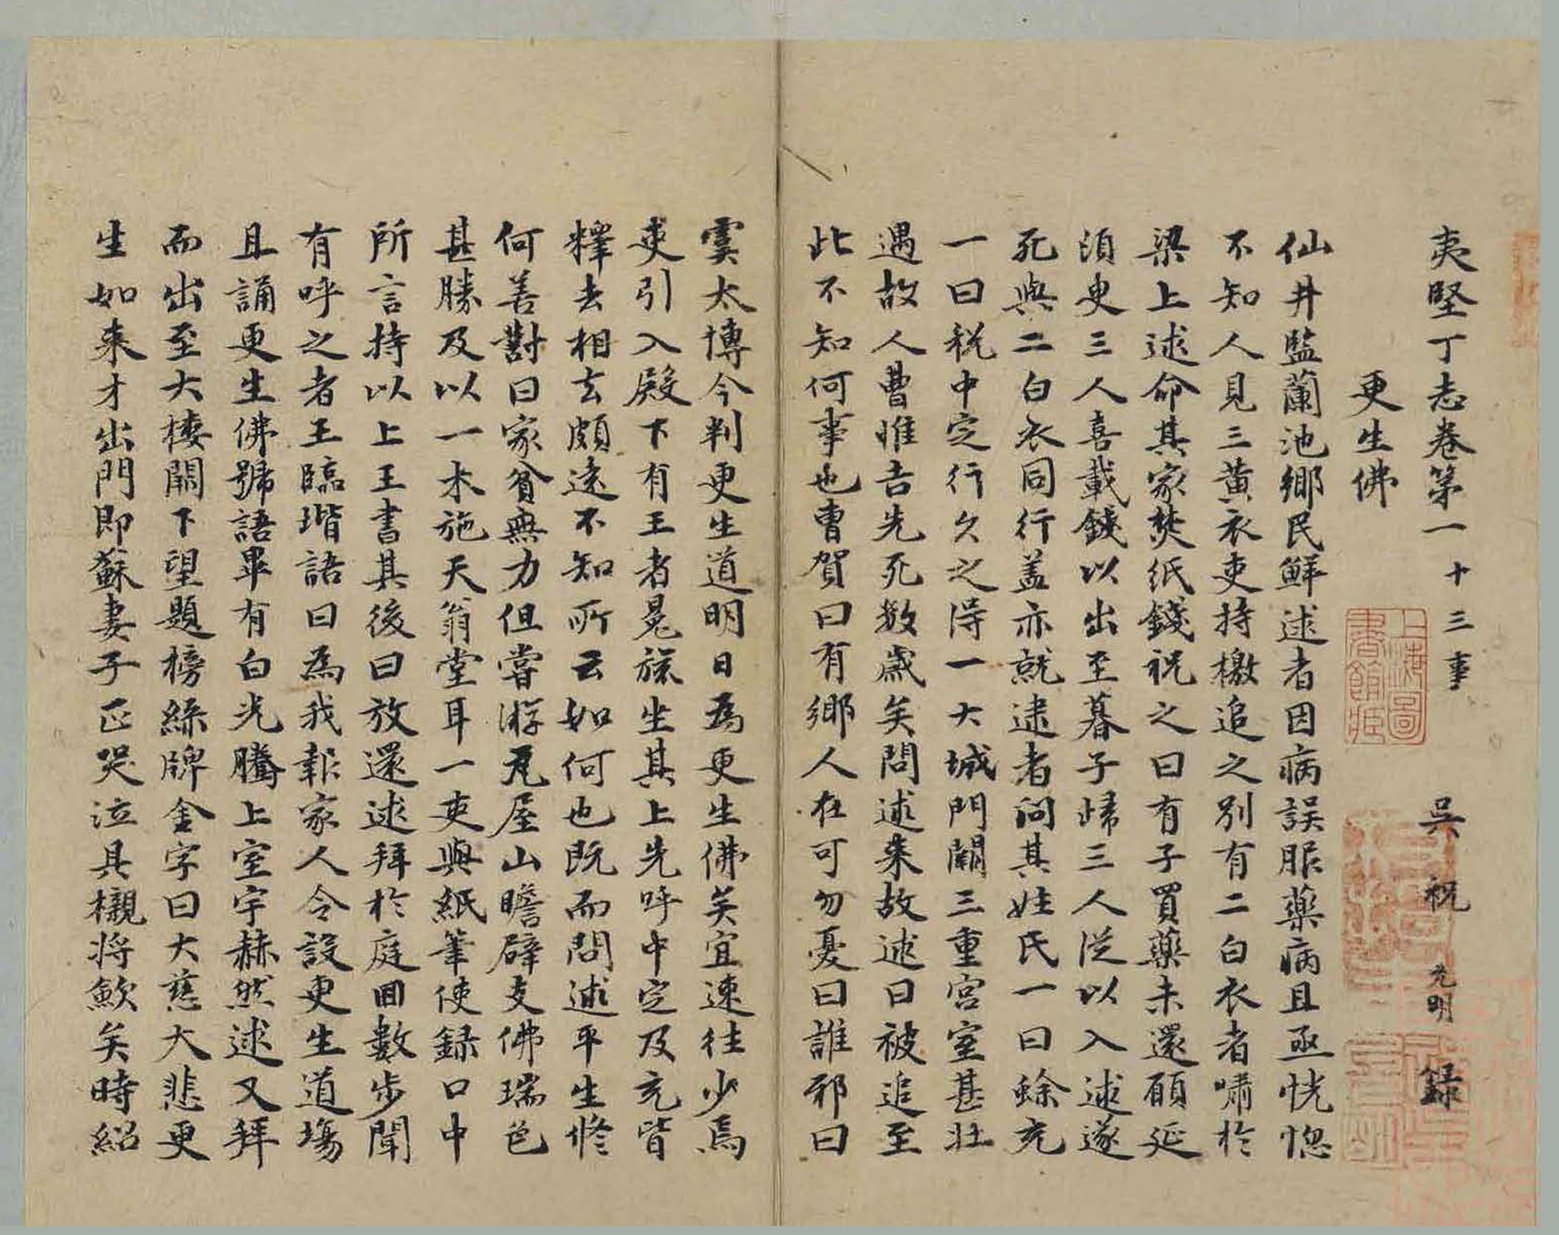 夷堅丁志卷第一十三事 吳祝元明錄
更生佛
仙井監蘭池鄉民鮮逑者因病誤服藥病且亟恍惚
不知人見三黃衣吏持檄追之別有二白衣者嘯於
梁上逑命其家焚紙錢祝之曰有子買藥未還願延
須臾三人喜載錢以出至暮子歸三人從以入逑遂
死與二白衣同行盖亦就逮者問其姓氏一曰蜍充
一曰稅中定行久之得一大城門闕三重宮室甚壯
遇故人曹惟吉先死数歲矣問逑来故逑曰被追至
此不知何事也曹賀曰有鄉人在可勿憂曰誰邪曰
虞太博今判更生道明日為更生佛矣宜速往少焉
吏引入殿下有王者冕旒坐其上先呼中定及充皆
釋去相去頗遠不知所云如何也既而問逑平生修
何善對曰家貧無力但嘗游瓦屋山瞻辟支佛瑞色
甚勝及以一木施天翁堂耳一吏與紙筆使録口中
所言持以上王書其後曰放還逑拜於庭囬數步聞
有呼之者王臨堦語曰為我報家人令設更生道塲
且誦更生佛號語畢有白光騰上室宇赫然逑又拜
而出至大樓闕下望題榜綠牌金字曰大慈大悲更
生如来才出門即蘇妻子正哭泣具櫬将歛矣時紹
上海圖
書館藏